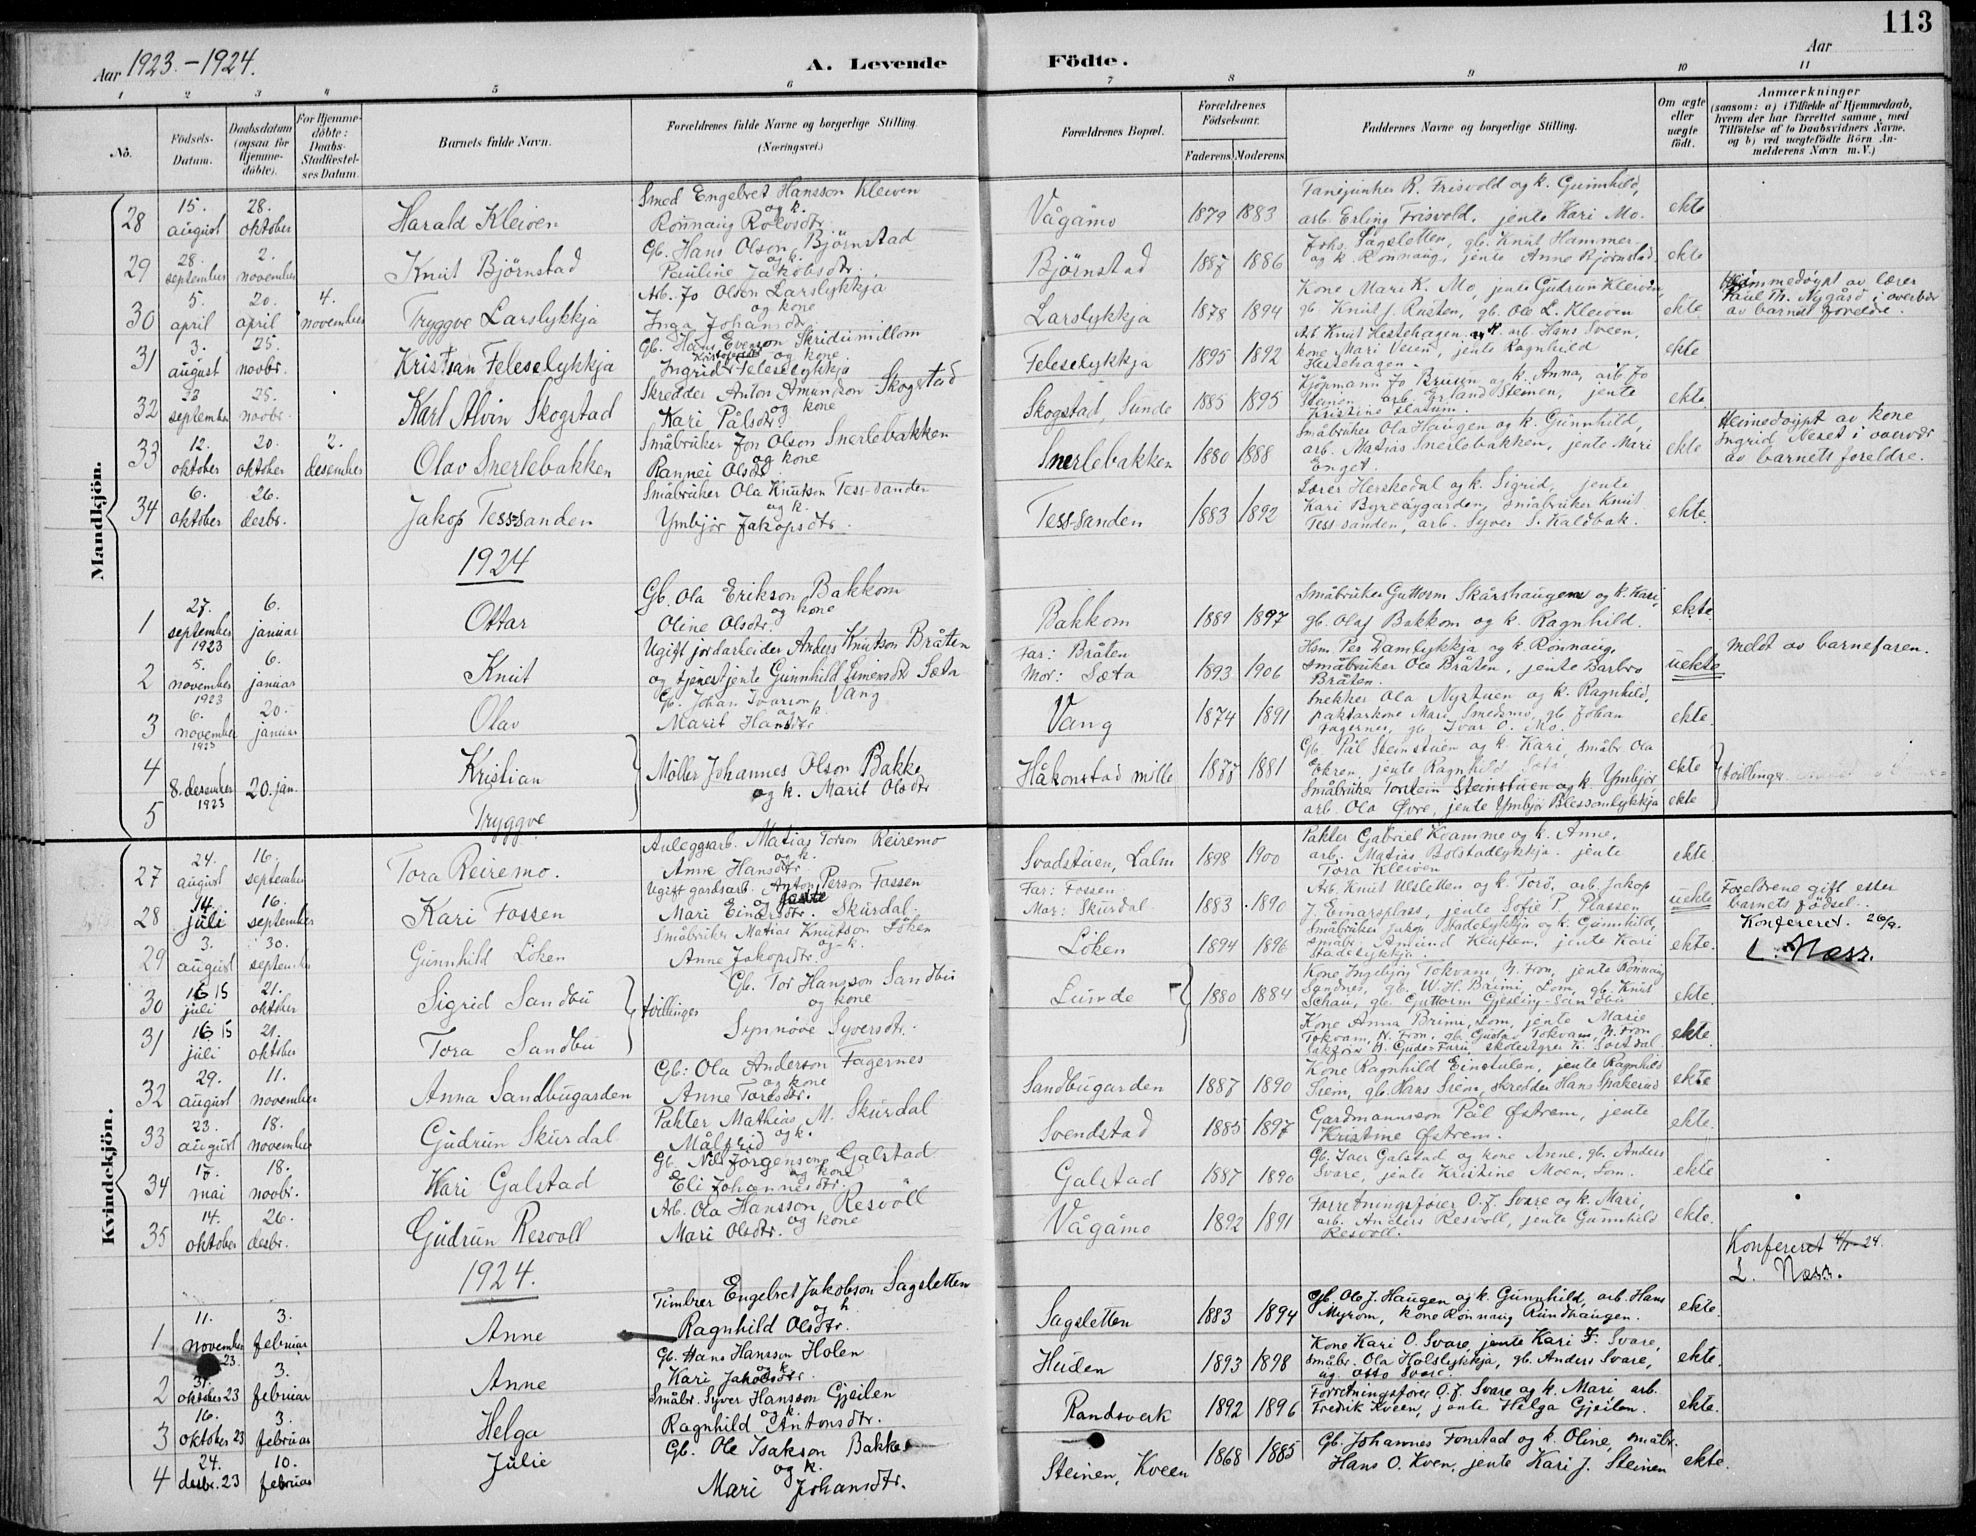 113
Aar 1923.-1924.
A. Levende Födte.
Aar
1 2 3 4 5 6 7 8 9 10 11
No.
Födsels-Datum.
Daabsdatum (ogsaa for Hjemme-döbte).
For Hjemme-döbte: Daabs-Stadfæstel-ses Datum.
Barnets fulde Navn.
Forældrenes fulde Navne og borgerlige Stilling. (Næringsvei.)
Forældrenes Bopæl.
Forældrenes Födselsaar.
Faderens. Moderens.
Faddernes Navne og borgerlige Stilling.
Om ægte eller uægte födt.
Anmærkninger (saasom: a) i Tilfælde af Hjemmedaab, hvem der har forrettet samme, med Tilföielse af to Daabsvidners Navne, og b) ved uægtefödte Börn An-melderens Navn m.V.)
Mandkjön.
28 15. august 28. oktober Harald Kleiven Smed Engebret Hansson Kleiven og k. Rönnaug Rolvsdtr. Vågåmo 1879 1883 R. Frisvold og k. Gunnhild, arb. Erling Frisvold, jente Kari Mo. ekte
29 28. september 2. november Knut Bjørnstad Gb. Hans Olson Bjørnstad og k. Pauline Jakobsdtr. Bjørnstad 1887 1886 Johs. Sagsletten, gb. Knut Hammer og k. Rønnaug, jente Anne Bjørnstad. ekte
30 5. april 20. april 4. november Tryggve Larslykkja Arb. Jo Olson Larslykkja og kone Inga Johansdtr. Larslykkja 1878 1894 Kone Mari K. Mo, jente Gudrun Kleiven, gb. Knut J. Rusten, gb. Ole L. Kleiven ekte. Hjemmedøypt av lærer Paul Th. Nygård i overvær av barnets foreldre.
31 3. august 25. novbr. Kristian Feleselykkja Gb. Hans Evenson Skridumillom og kone Ingrid Feleselykkja Feleselykkja 1895 1892 Arb. Knut Hestehagen og k. arb. Hans Sveen, kone Mari Veien, jente Ragnhild Hestehagen. ekte
32 23 september 25. novbr. Karl Alvin Skogstad Skredder Anton Amundson Skogstad og kone Kari Pålsdtr. Skogstad, Sunde 1885 1895 Kjøpmann Jo Bruun og k. Anna, arb Jo Steinen, arb. Erland Steinen, jente Kristine Slatum. ekte
33 12. oktober 20. oktober 2. desember Olav Snerlebakken Småbruker Jon Olson Snerlebakken og kone Rannei Olsdtr. Snerlebakken 1880 1888 Småbruker Ola Haugen og k. Gunnhild, arb. Matias Snerlebakken, jente Mari Enget. ekte Heimedøypt av kone Ingrid Neset i overvær av barnets foreldre.
34 6. oktober 26. desbr. Jakop Tess-sanden Småbruker Ola Knutson Tess-sanden og k. Ymbjør Jakopsdtr. Tess-sanden 1883 1892 Lærer Herskedal og k. Sigrid, jente Kari Byreøygarden, småbruker Knut Tess-sanden, arb. Syver S. Kaldbak. ekte.
1924
1 27. september 1923 6. januar Ottar Gb. Ola Erikson Bakkom og kone Oline Olsdtr. Bakkom 1889 1897 Småbruker Guttorm Skårshaugen og k. Kari, gb. Olaf Bakkom og k. Ragnhild. ekte.
2 5. november 1923 6. januar Knut Ugift jordarbeider Anders Knutson Bråten og tjenestjente Gunnhild Simensdtr Sæta Far: Bråten Mor: Sæta 1893 1906 Hsm. Per Damlykkja og k. Rønnaug, småbruker Ole Bråten, jente Barbro Bråten. uekte Meldt av barnefaren.
3 6. november 1923 20. januar Olav Gb. Johan Ivarson Vang og k Marit Hansdtr Vang 1874 1891 Snekker Ola Nystuen og k. Ragnhild, paktarkone Mari Smedsmo, gb. Johan Fagernes, gb. Ivar O. Mo. ekte.
4 8. desember 1923 20. jan. Kristian Möller Johannes Olson Bakke og k. Marit Olsdtr Håkonstad mölle 1877 1881 Gb. Pål Steinstuen og k. Kari, småbr. Ola Ekren, jente Ragnhild ekte tvillinger
5 Tryggve Småbruker Torstein Steinstuen og k. Ymbjør, arb. Ola Øvre, jente Ymbjør Blessomlykkja ekte
Kvindekjön.
27 24. august 16. september Tora Reiremo. Anleggsarb. Matias Torson Reiremo og k. Anne Hansdtr Svadstuen, Lalm 1898 1900 Pakter Gabriel Kvamme og k. Anne, arb. Matias Bolstadlykkja. jente Tora Kleiven ekte.
28 14. juli 16. september Kari Fossen Ugift gardsarb. Anton Person Fossen og jente Mari Einarsdtr. Skurdal. Far: Fossen. Mor: Skurdal. 1883 1890 Arb. Knut Ulsletten og k. Torø, arb. Jakop J. Einarsplass, jente Sofie P. Plassen uekte Foreldrene gift etter barnets fødsel. Konfereret 26/9. L. Næss.
29 3. august 30. september Gunnhild Löken Småbruker Matias Knutson Löken og k. Anne Jakopsdtr. Löken 1894 1896 Småbruker Jakop Stadelykkja og k. Gunnhild, småbr. Amund Kluften, jente Kari Stadelykkja. ekte.
30 15 juli 21. oktober Sigrid Sandbu tvillinger Gb. Tor Hansson Sandbu og kone Synnøve Syversdtr. Lunde 1880 1884 Kone Ingebjørg Tokvam, N. Fron, jente Rønnaug Sandnes, gb. W. H. Brimi, Lom, gb. Knut Schau, gb. Guttorm Gjesling-Sandbu ekte.
31 15 juli 21. oktober Tora Sandbu Kone Anna Brimi, Lom, jente Marie Tokvam, N. Fron, gb. Gudm. Tokvam, N. Fron ekte.
32 29. august 11. november Anna Sandbugarden Gb: Ola Anderson Fagernes og kone Anne Toresdtr. Sandbugarden 1887 1890 Kone Ragnhild Einstulen, jente Ragnhild Siem, gb. Hans Siem, skredder Hans Spakerud ekte
33 23. august 18. november Gudrun Skurdal Pakter Mathias M. Skurdal og k. Målfrid Svendstad 1885 1897 Gardmannsson Pål Østrem, jente Kristine Østrem. ekte.
34 17 mai 18. novbr. Kari Galstad Gb. Nils Jörgenson Galstad og kone Eli Johannesdtr. Galstad 1887 1890 Gb. Iver Galstad og kone Anne, gb. Anders Svare, jente Kristine Moen, Lom. ekte
35 14. oktober 26. desbr. Gudrun Resvoll Arb. Ola Hansson Resvöll og kone Mari Olsdtr. Vågåmo 1892 1891 Forretningsfører O. J. Svare og k. Mari, arb. Anders Resvoll, jente Gunnhild Resvoll. ekte.
Konfereret 4/1-24. L. Næss.
1924.
1 11. november 23. 3. februar Anne Tømrer Engebret Jakobson Sagsletten og k. Ragnhild Olsdtr. Sagsletten 1883 1894 Gb. Ole J. Haugen og k. Gunnhild, arb. Hans Myrom, kone Rønnaug Rundhaugen. ekte.
2 31. oktober 23 3. februar Anne Gb. Hans Hansson Holen og k. Kari Jakobsdtr. Huden 1893 1898 Kone Kari O. Svare, jente Kari F. Svare, småbr. Ola Holslykkja, gb. Anders Svare, og Otto Svare. ekte.
3 16. oktober 23 3. februar Helga Småbr. Syver Hansson Gjeilen og k. Ragnhild Antonsdtr. Randsverk 1892 1896 Forretningsfører O. J. Svare og k. Mari arb. Fredrik Kveen, jente Helga Gjeilen. ekte.
4 24. desbr. 23 10. februar Julie Gb. Ole Isakson Bakke og k. Mari Johansdtr. Steinen, Kveen 1868 1885 Gb. Johannes Fonstad og k. Oline, småbr. Hans O. Kven, jente Kari J. Steinen ekte.